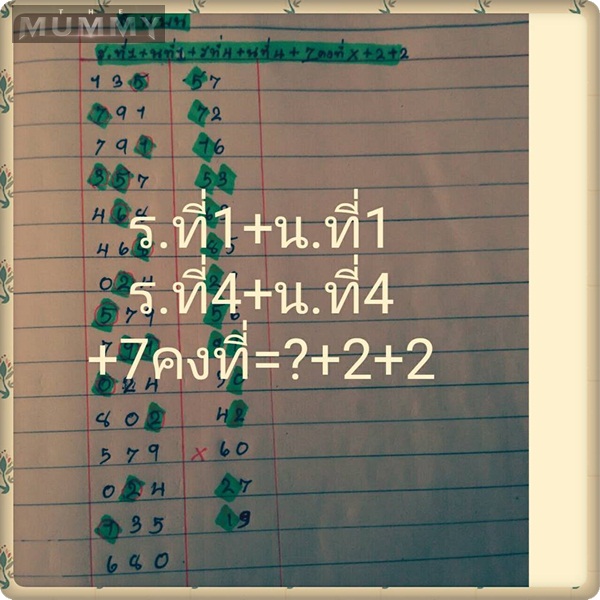 THE
MUMMY
ร.ที่1+น.ที่1+ร.ที่4+น.ที่4+7คงที่ x+2+2
135 57
791 72
791 16
357 53
ร.ที่1+น.ที่1
468 85
ร.ที่4+น.ที่4
579 56
+7คงที่=?+2+2
024
802 42
579 x 60
024 27
135 19
680